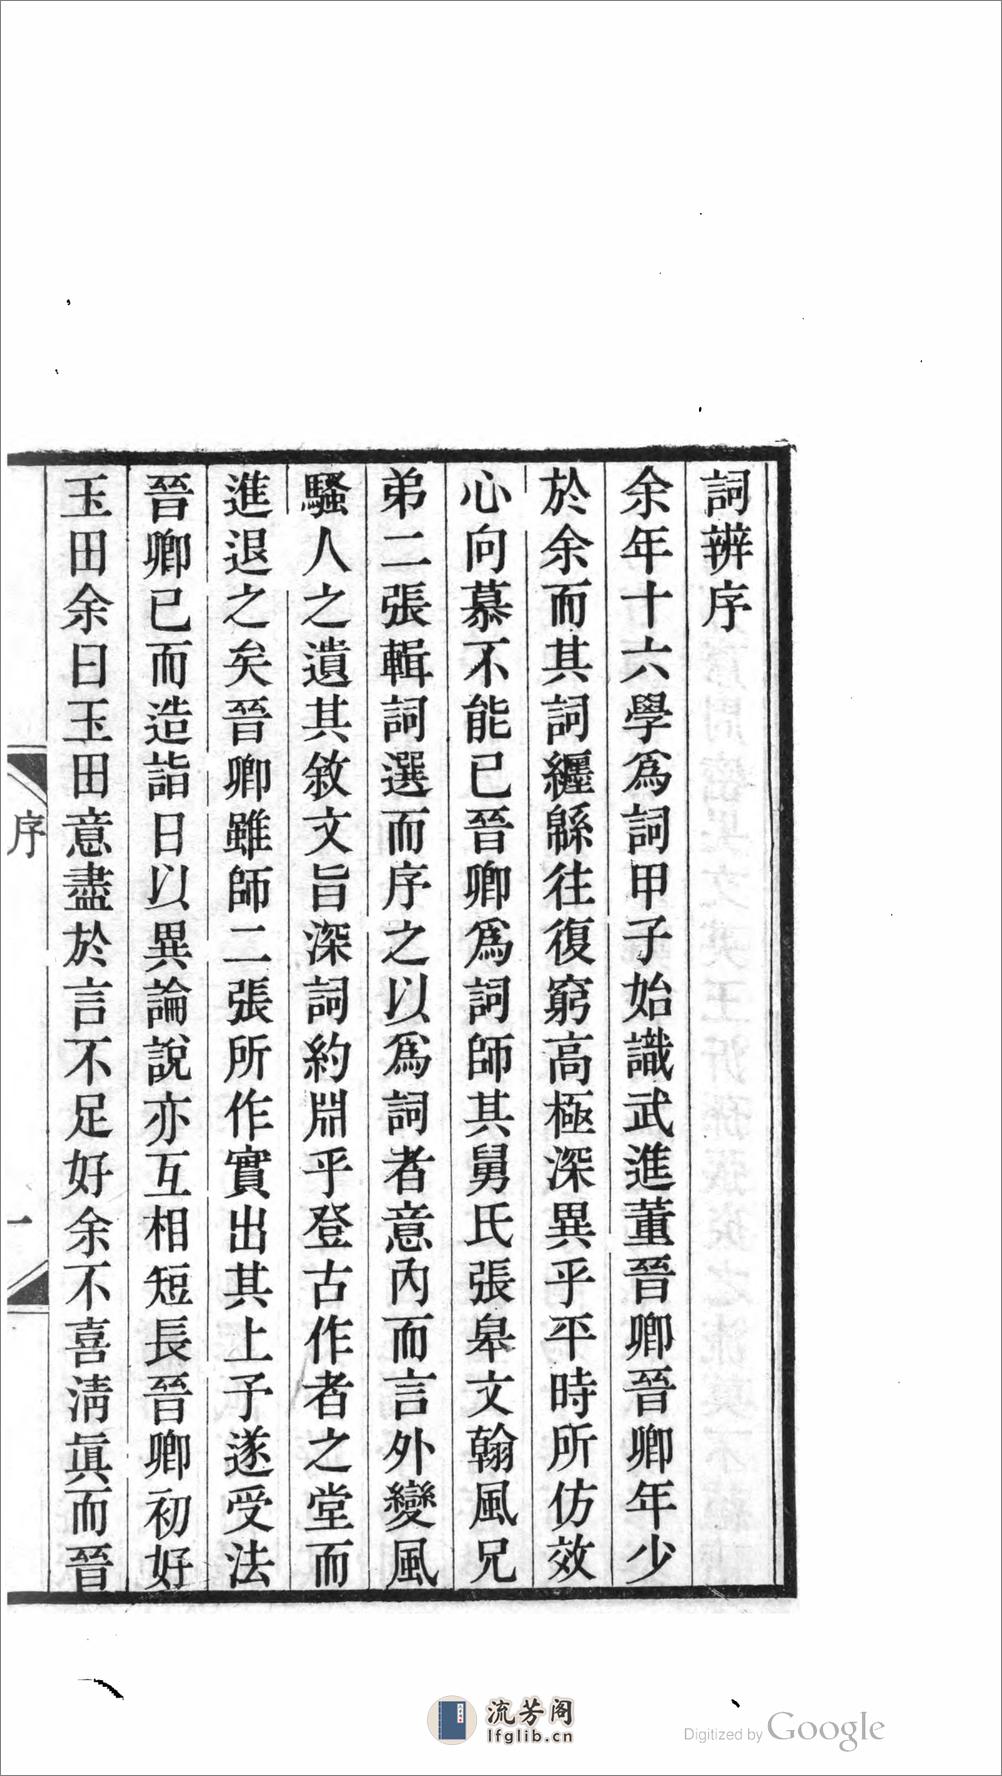 詞辨序
余年十六學爲詞甲子始識武進董晉卿晉卿年少
於余而其詞纏緜往復窮高極深異乎平時所仿效
心向慕不能已晉卿爲詞師其舅氏張皋文翰風兄
弟二張輯詞選而序之以爲詞者意內而言外變風
騷人之遺其敘文旨深詞約淵乎登古作者之堂而
進退之矣晉卿雖師二張所作實出其上予遂受法
晉卿已而造詣日以異論說亦互相短長晉卿初好
玉田余曰玉田意盡於言不足好余不喜淸眞而晉
序
一
流芳阁
lfglib.cn
Digitized by Google